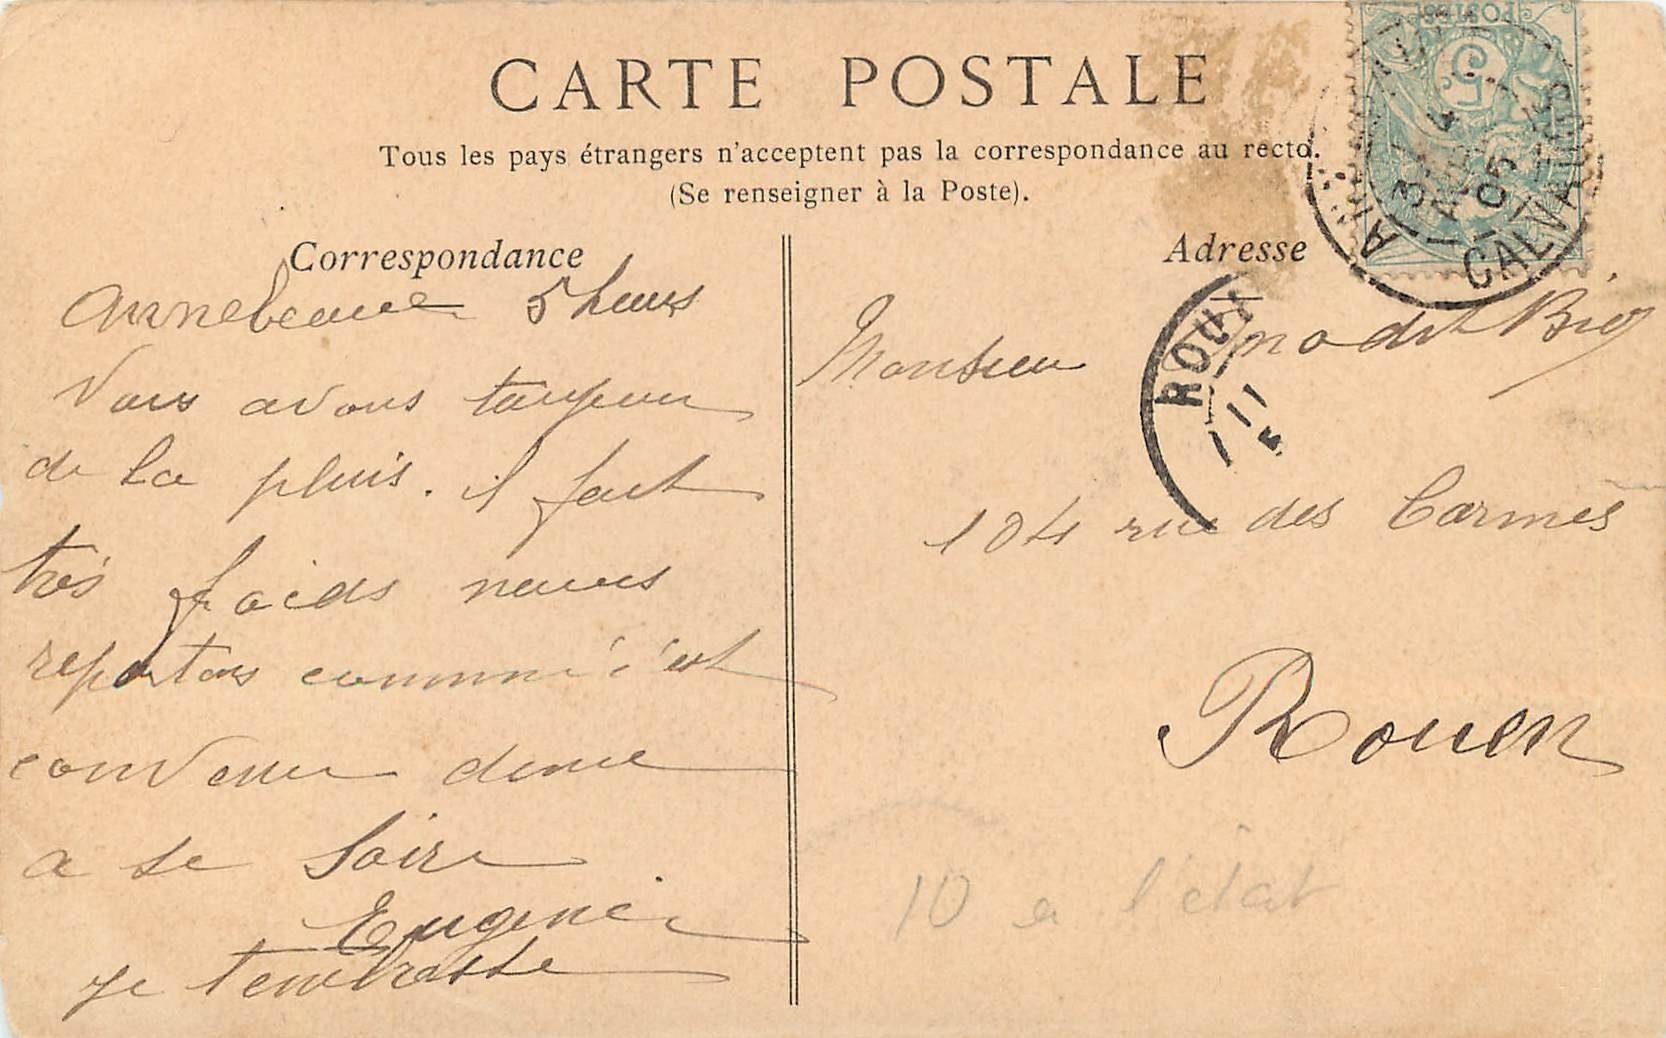 CARTE POSTALE
Tous les pays étrangers n'acceptent pas la correspondance au recto.
(Se renseigner à la Poste).
Correspondance
Annebeaue 5 heurs
Nous avons toujour
de la pluis. il fait
très froids nous
reportons comme c'est
convenu donc
a se Soire
Eugenie
je t'embrasse
Adresse
Monsieur
104 rue des Carmes
Rouen
10 a l'état
POSTES
5
CALVADOS
3
4
05
ROU
11